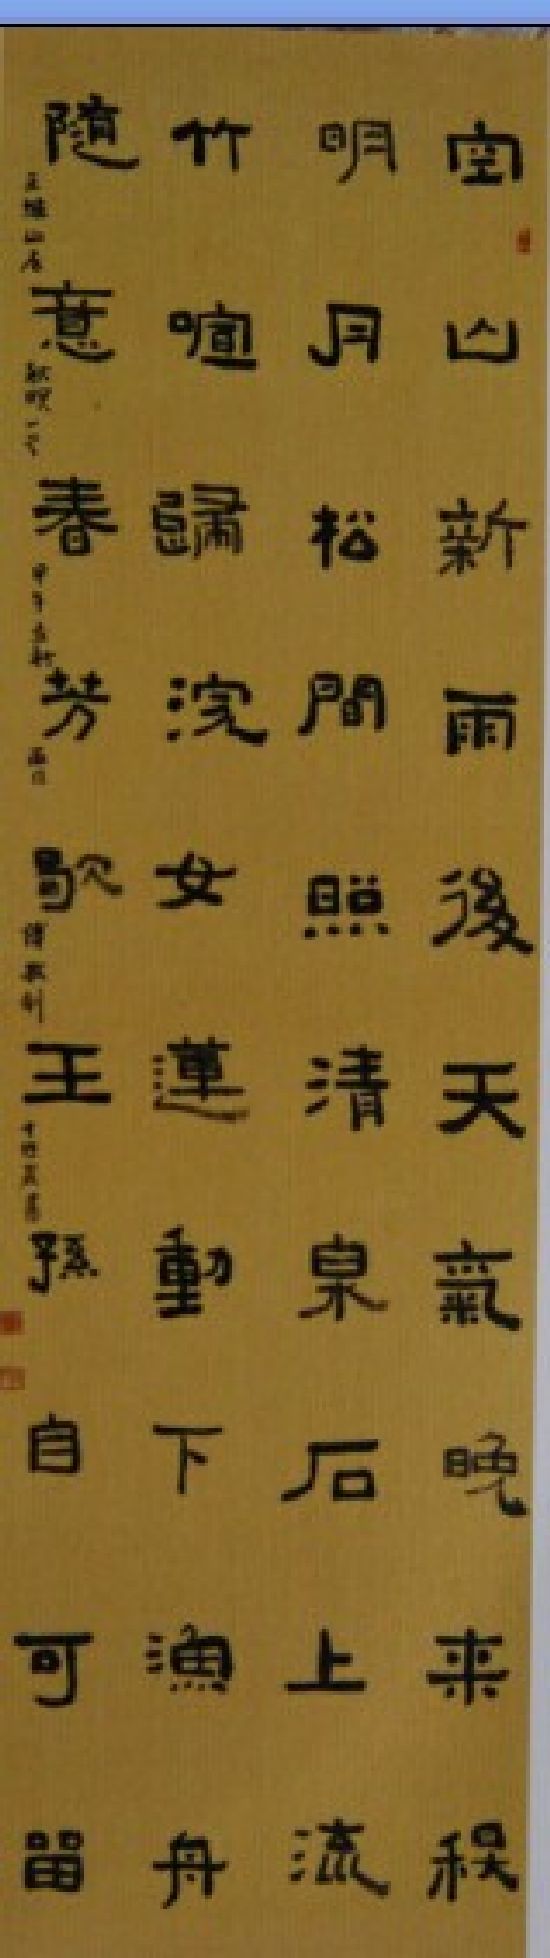 空山新雨後天氣晚来秋
明月松間照清泉石上流
竹喧歸浣女蓮動下漁舟
隨意春芳歇王孫自可留
王維山居秋暝一首甲午立秋